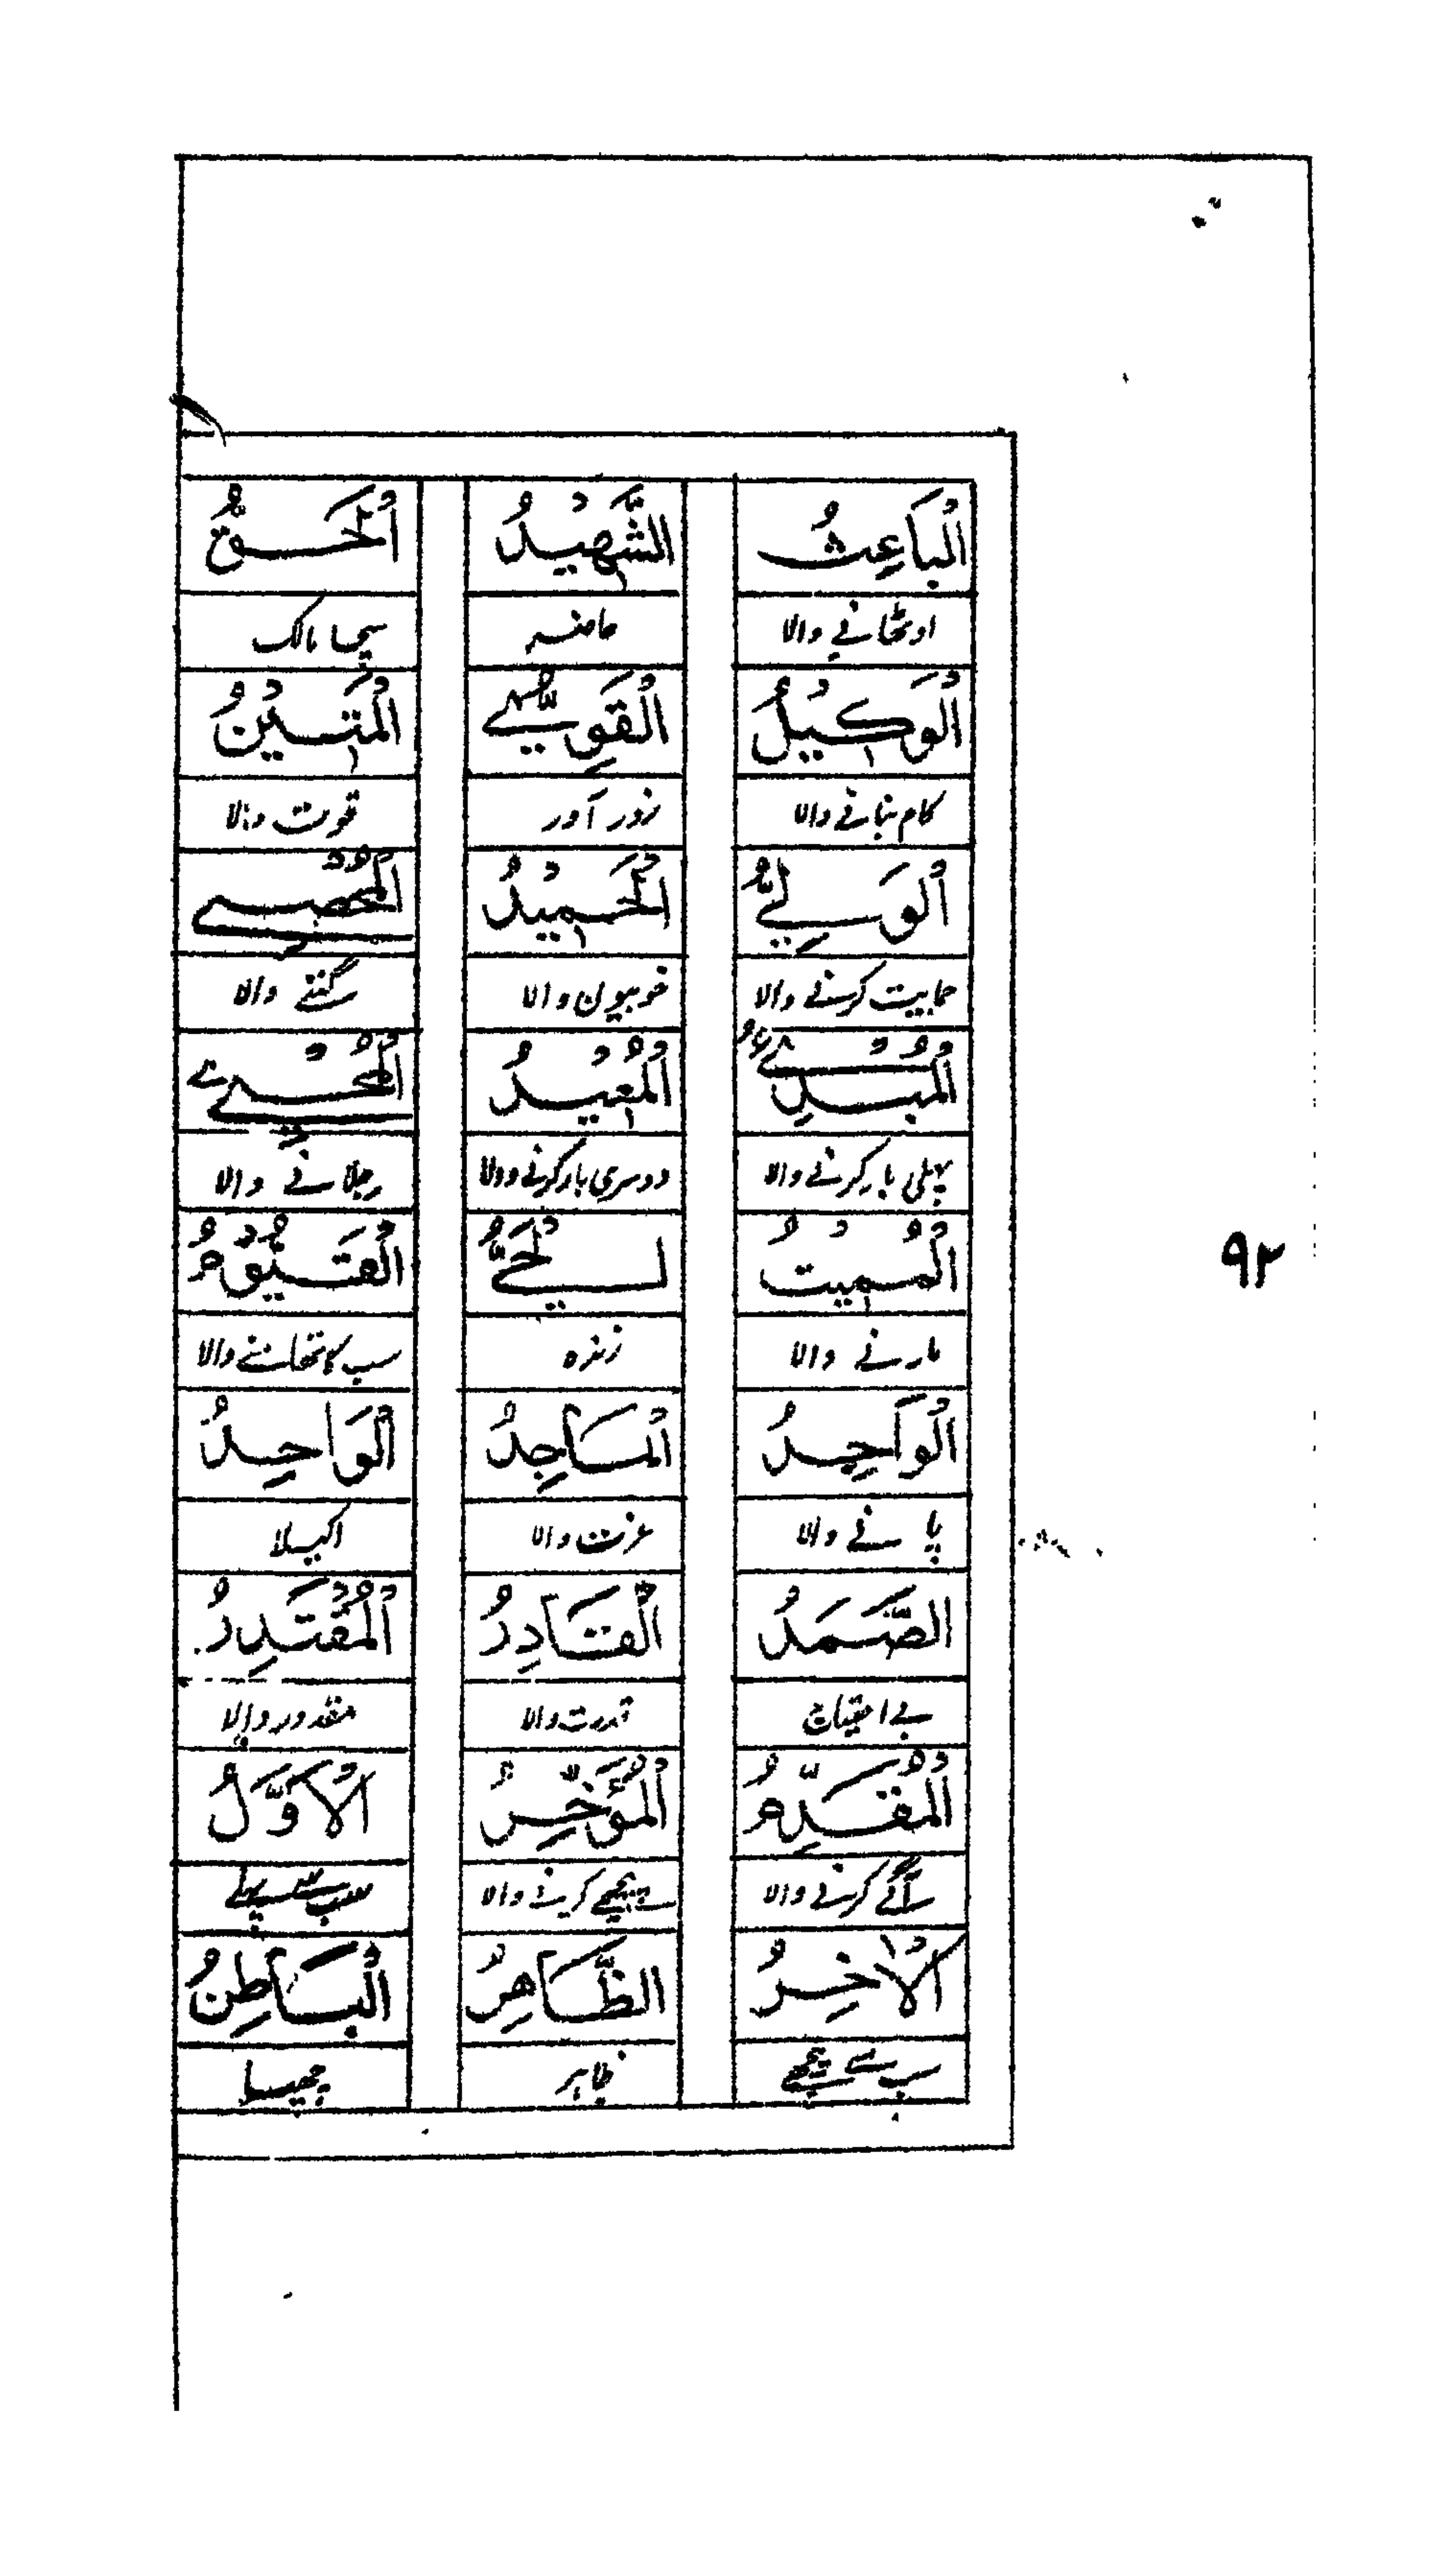 اَلْبَاعِثُ الشَّهِيْدُ اَلْحَقُّ
اوٹھانے والا حاضر سچا مالک
اَلْوَكِيْلُ اَلْقَوِيُّ اَلْمَتِيْنُ
کام بنانے والا زور آور قوت والا
اَلْوَلِيُّ اَلْحَمِيْدُ اَلْمُحْصِي
حمایت کرنے والا خوبیون والا گننے والا
اَلْمُبْدِئُ اَلْمُعِيْدُ اَلْمُحْيِي
پہلی بار کرنے والا دوسری بار کرنے والا جلانے والا
اَلْمُمِيْتُ اَلْحَيُّ اَلْقَيُّوْمُ
مارنے والا زندہ سب کا تھامنے والا
اَلْوَاجِدُ اَلْمَاجِدُ اَلْوَاحِدُ
پانے والا عزت والا اکیلا
الصَّمَدُ اَلْقَادِرُ اَلْمُقْتَدِرُ
بے احتیاج قدرت والا مقدور والا
اَلْمُقَدِّمُ اَلْمُؤَخِّرُ اَلْاَوَّلُ
آگے کرنے والا پیچھے کرنے والا سب سے پہلے
اَلْاٰخِرُ الظَّاهِرُ اَلْبَاطِنُ
سب سے پیچھے ظاہر چھپا
۹۲